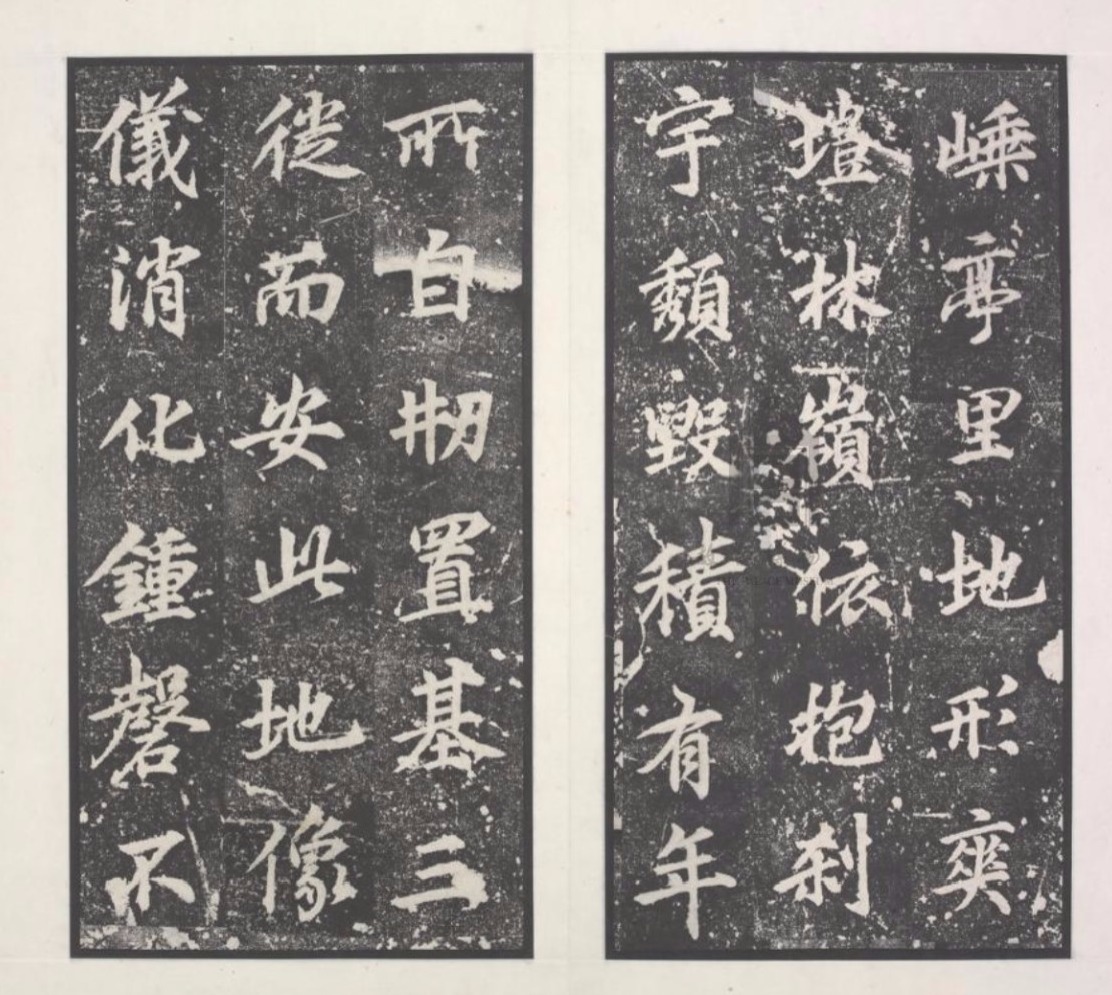 嵊亭里地形爽
塏林嶺依抱刹
宇頹毀積有年
所自刱置基三
徙而安此地像
儀消化鍾磬不